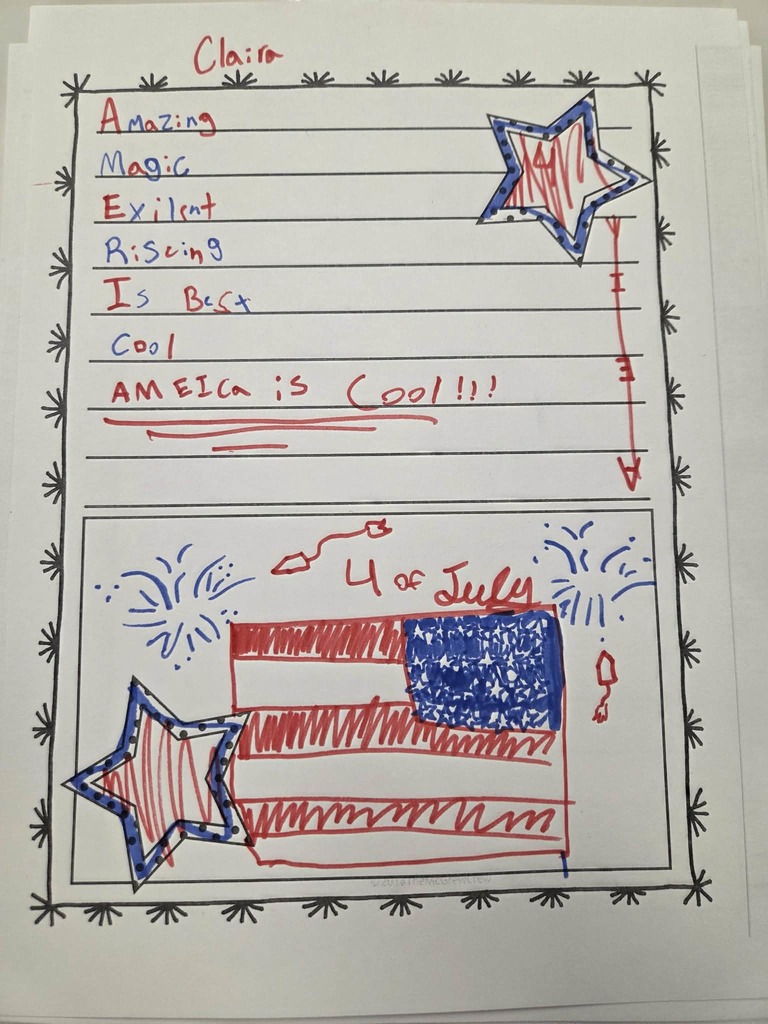 Claira
Amazing
Magic
Exilent
Riscing
Is Best
Cool
AMEICa is Cool!!!
4 of July